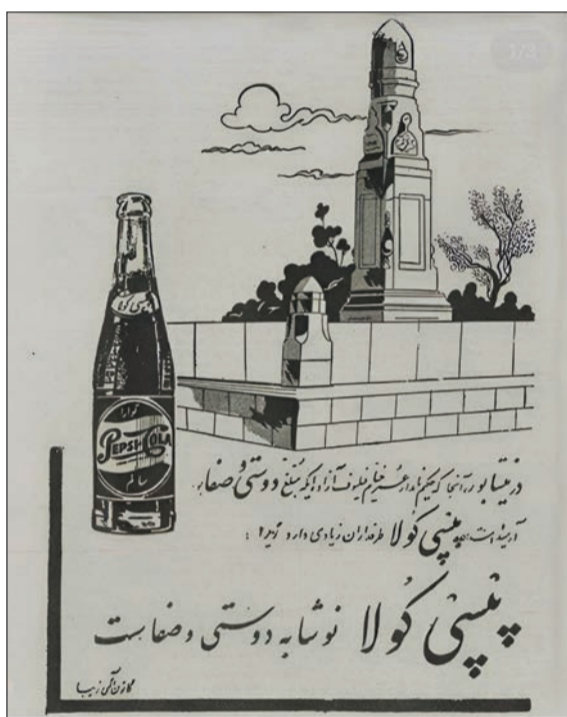 1/3
پپسی کولا
گوارا
PEPSI-COLA
سالم
در نیشابور، آنجا که حکیم نامدار عمر خیام فیلسوف آزاده ایکه مبلغ دوستی و صفا بود
آرمیده است، پپسی کولا طرفداران زیادی دارد زیرا :
پپسی کولا نوشابه دوستی و صفاست
کانون آگهی زیبا